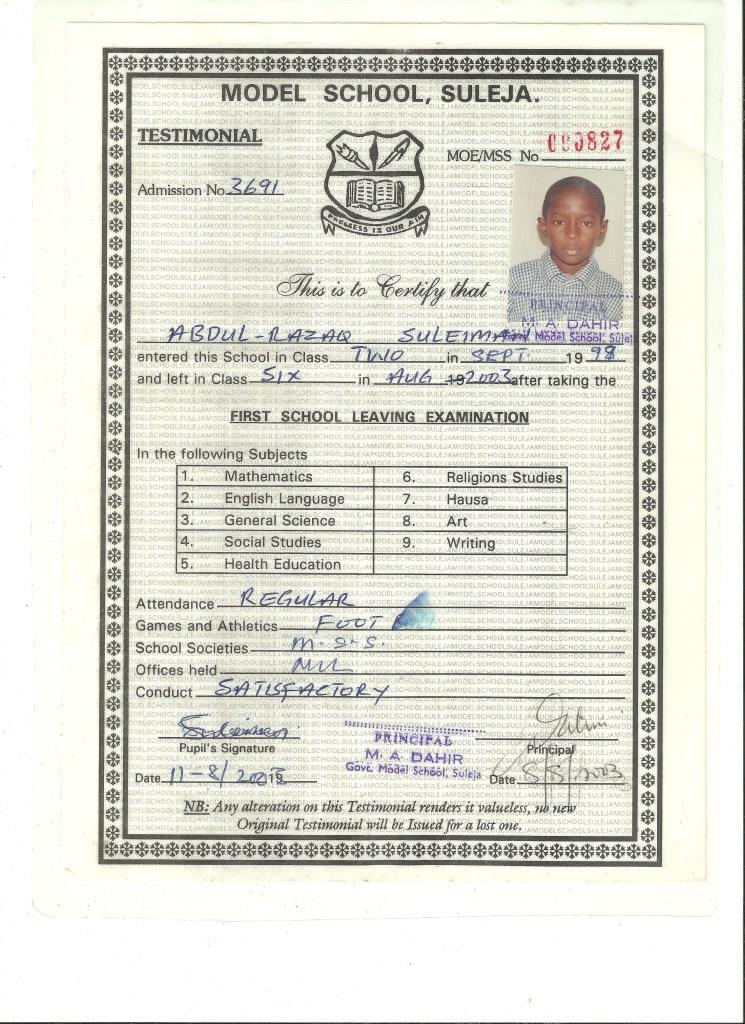 MODEL SCHOOL, SULEJA.
TESTIMONIAL
MOE/MSS No 090827
Admission No 3691
PROGRESS IS OUR AIM
This is to Certify that
PRINCIPAL
M. A. DAHIR
Govt. Model School, Suleja
ABDUL-RAZAQ SULEIMAN
entered this School in Class TWO in SEPT 19 98
and left in Class SIX in AUG 19 2003 after taking the
FIRST SCHOOL LEAVING EXAMINATION
In the following Subjects
1. Mathematics 6. Religions Studies
2. English Language 7. Hausa
3. General Science 8. Art
4. Social Studies 9. Writing
5. Health Education
Attendance REGULAR
Games and Athletics FOOT
School Societies M.S.S.
Offices held NIL
Conduct SATISFACTORY
Suleiman
Pupil's Signature
PRINCIPAL
M. A. DAHIR
Govt. Model School, Suleja
Principal
Date 11-8/2003 19
Date 8/8/2003
NB: Any alteration on this Testimonial renders it valueless, no new
Original Testimonial will be Issued for a lost one.